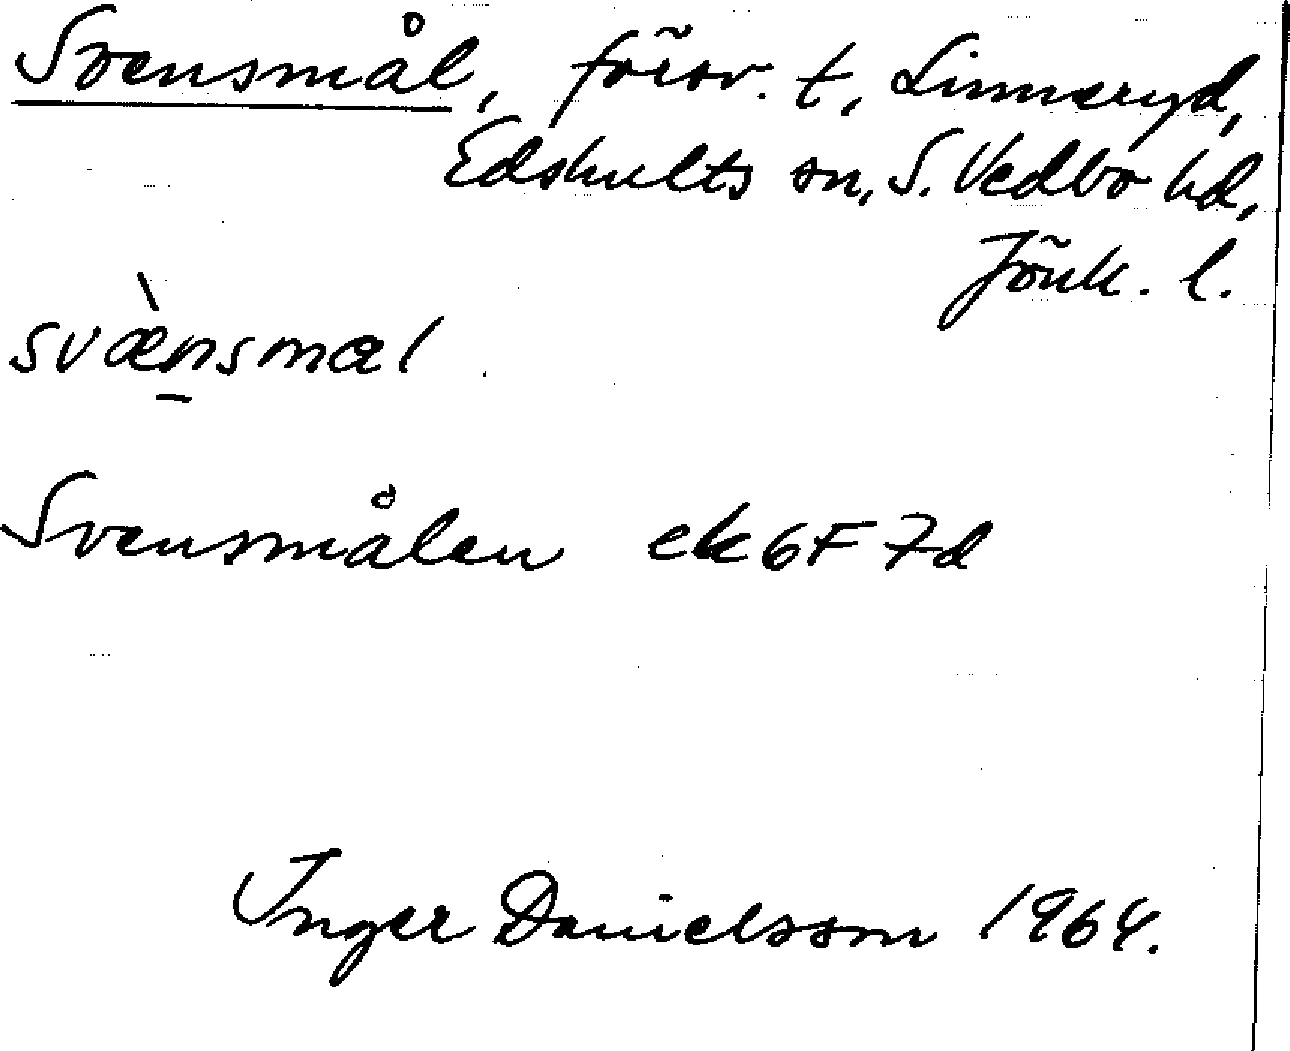 Svensmål, försv. t, Linneryd,
Edshults sn, S. Vedbo hd,
Jönk. l.
svæ̀n̲smæl
Svensmålen ek 6F 7d
Inger Danielsson 1964.